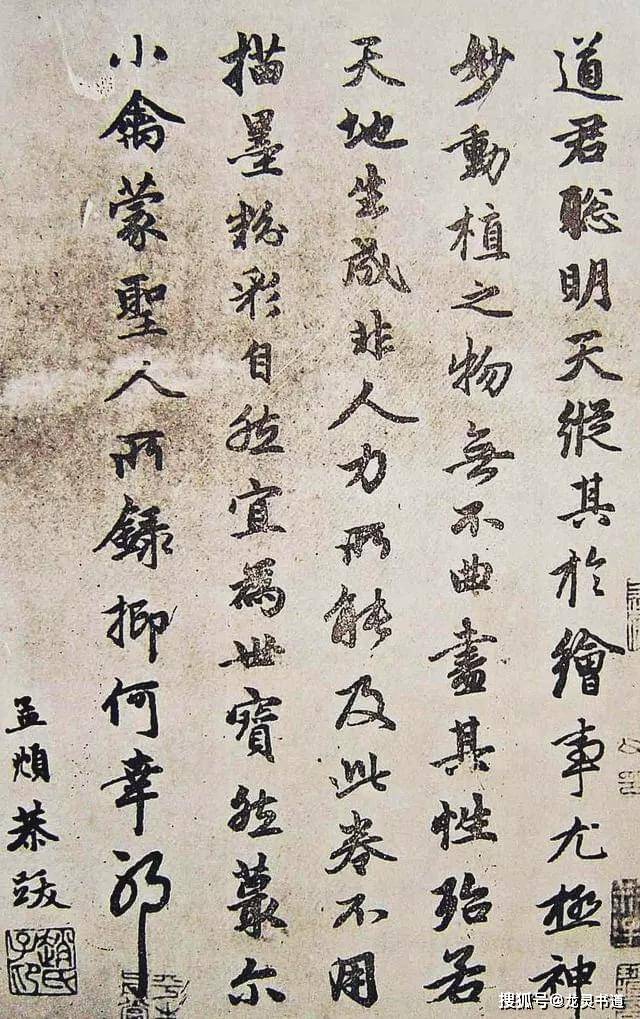 道君聰明天縱其於繪事尤極神
妙動植之物無不曲盡其性殆若
天地生成非人力所能及此卷不用
描墨粉彩自然宜為世寶然蕞尒
小禽蒙聖人所錄抑何幸耶
孟頫恭跋
趙氏子昂
搜狐号@龙灵书道